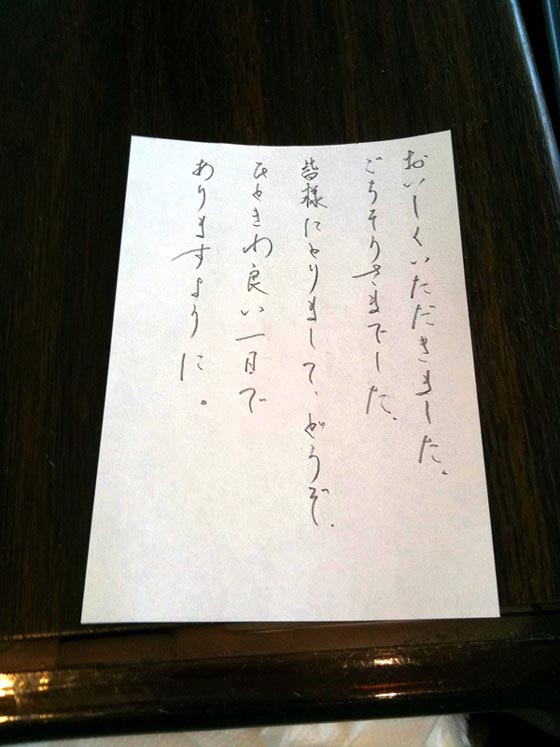 おいしくいただきました。
ごちそうさまでした。
皆様にとりまして、どうぞ、
ひときわ良い一日で
ありますように。